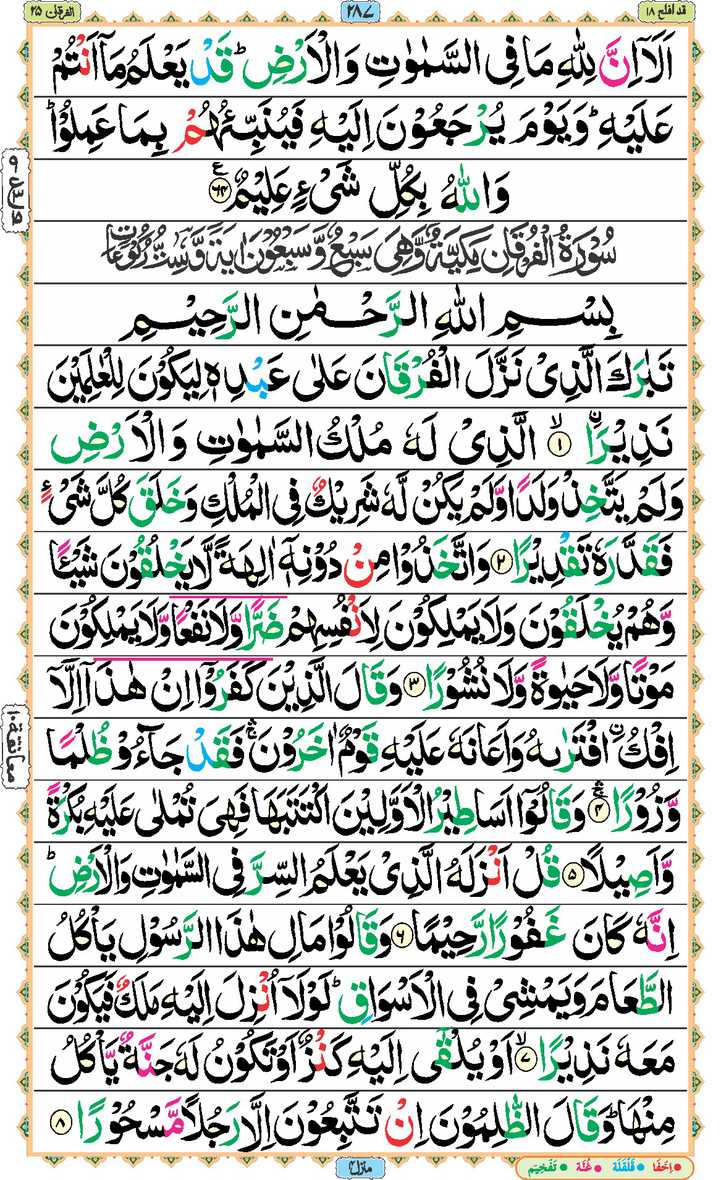 قد افلح ۱۸
۲۸۷
الفرقان ۲۵
اَلَاۤ اِنَّ لِلّٰهِ مَا فِی السَّمٰوٰتِ وَالْاَرْضِ ؕ قَدْ یَعْلَمُ مَاۤ اَنْتُمْ
عَلَیْهِ ؕ وَیَوْمَ یُرْجَعُوْنَ اِلَیْهِ فَیُنَبِّئُهُمْ بِمَا عَمِلُوْا ؕ
وَاللّٰهُ بِكُلِّ شَیْءٍ عَلِیْمٌ ۶۴ ع
سُوْرَةُ الْفُرْقَانِ مَكِّیَّةٌ وَّهِیَ سَبْعٌ وَّسَبْعُوْنَ اٰیَةً وَّسِتُّ رُكُوْعَاتٍ
بِسْمِ اللّٰهِ الرَّحْمٰنِ الرَّحِیْمِ
تَبٰرَكَ الَّذِیْ نَزَّلَ الْفُرْقَانَ عَلٰی عَبْدِهٖ لِیَكُوْنَ لِلْعٰلَمِیْنَ
نَذِیْرَاۨ ۙ۱ الَّذِیْ لَهٗ مُلْكُ السَّمٰوٰتِ وَالْاَرْضِ
وَلَمْ یَتَّخِذْ وَلَدًا وَّلَمْ یَكُنْ لَّهٗ شَرِیْكٌ فِی الْمُلْكِ وَخَلَقَ كُلَّ شَیْءٍ
فَقَدَّرَهٗ تَقْدِیْرًا ۲ وَاتَّخَذُوْا مِنْ دُوْنِهٖۤ اٰلِهَةً لَّا یَخْلُقُوْنَ شَیْئًا
وَّهُمْ یُخْلَقُوْنَ وَلَا یَمْلِكُوْنَ لِاَنْفُسِهِمْ ضَرًّا وَّلَا نَفْعًا وَّلَا یَمْلِكُوْنَ
مَوْتًا وَّلَا حَیٰوةً وَّلَا نُشُوْرًا ۳ وَقَالَ الَّذِیْنَ كَفَرُوْۤا اِنْ هٰذَاۤ اِلَّاۤ
اِفْكُ ِۨافْتَرٰىهُ وَاَعَانَهٗ عَلَیْهِ قَوْمٌ اٰخَرُوْنَ ۛۚ فَقَدْ جَآءُوْ ظُلْمًا
وَّزُوْرًا ۛۚ ۴ وَقَالُوْۤا اَسَاطِیْرُ الْاَوَّلِیْنَ اكْتَتَبَهَا فَهِیَ تُمْلٰی عَلَیْهِ بُكْرَةً
وَّاَصِیْلًا ۵ قُلْ اَنْزَلَهُ الَّذِیْ یَعْلَمُ السِّرَّ فِی السَّمٰوٰتِ وَالْاَرْضِ ؕ
اِنَّهٗ كَانَ غَفُوْرًا رَّحِیْمًا ۶ وَقَالُوْا مَالِ هٰذَا الرَّسُوْلِ یَاْكُلُ
الطَّعَامَ وَیَمْشِیْ فِی الْاَسْوَاقِ ؕ لَوْلَاۤ اُنْزِلَ اِلَیْهِ مَلَكٌ فَیَكُوْنَ
مَعَهٗ نَذِیْرًا ۙ۷ اَوْ یُلْقٰۤی اِلَیْهِ كَنْزٌ اَوْ تَكُوْنُ لَهٗ جَنَّةٌ یَّاْكُلُ
مِنْهَا ؕ وَقَالَ الظّٰلِمُوْنَ اِنْ تَتَّبِعُوْنَ اِلَّا رَجُلًا مَّسْحُوْرًا ۸
منزل ۴
اِخْفَا قَلْقَلَة غُنَّة تَفْخِیْم